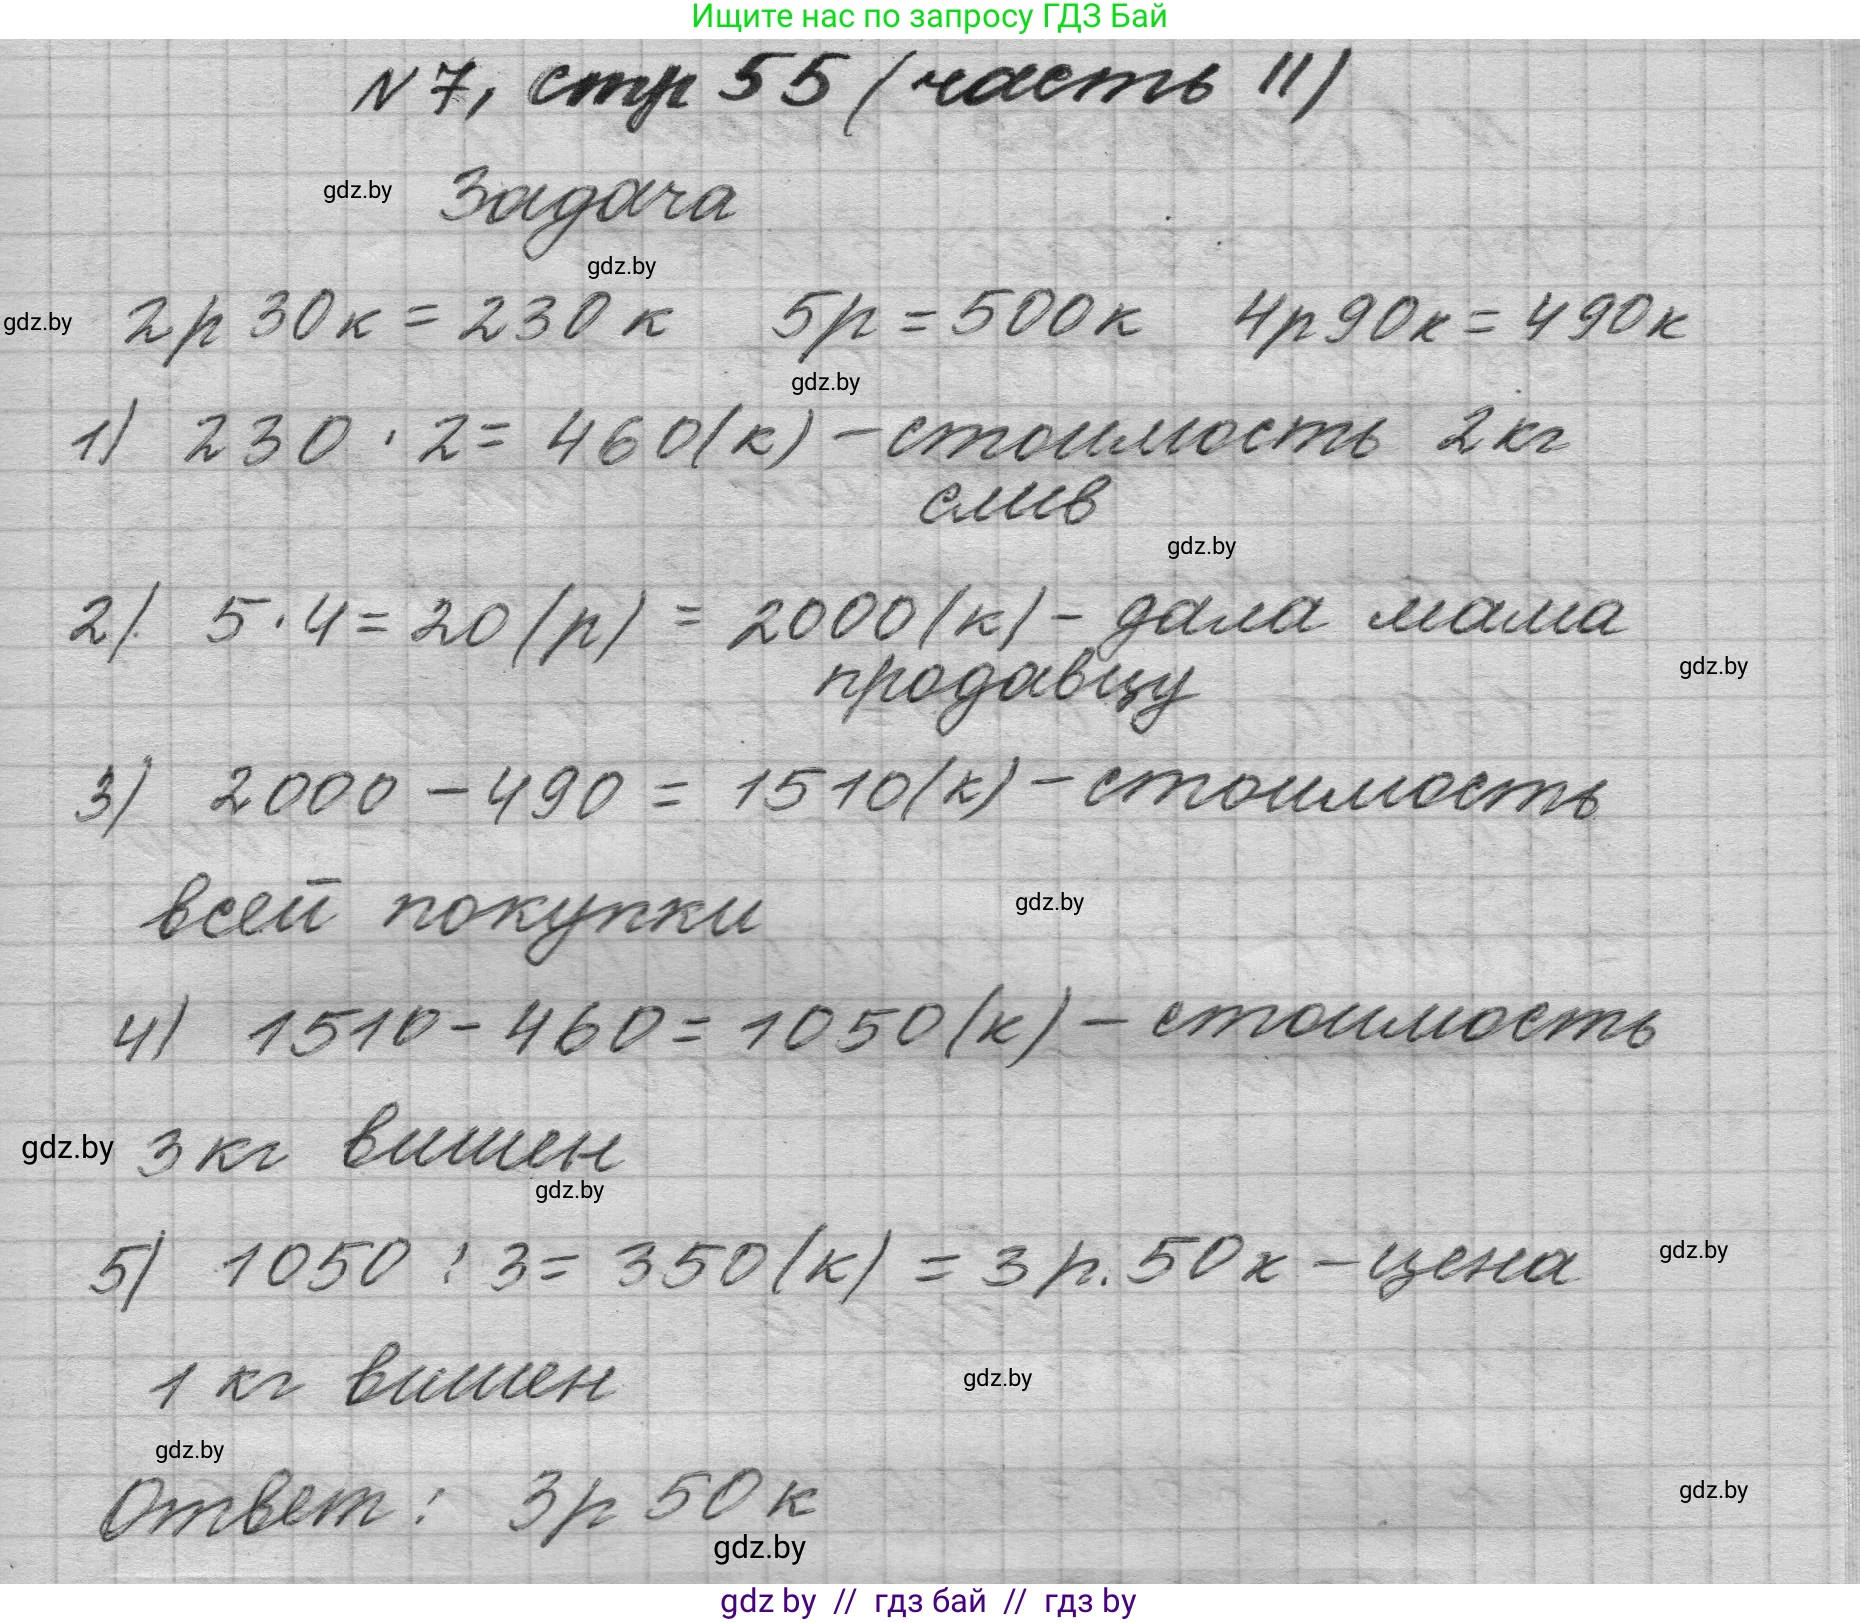 Ищите нас по запросу ГДЗ Бай
N 7, стр 55 (часть II)
gdz.by Задача
gdz.by
gdz.by 2р 30к = 230 к 5р = 500к 4р 90к = 490к
gdz.by
1) 230 · 2 = 460(к) - стоимость 2кг
слив
gdz.by
2). 5 · 4 = 20 (р) = 2000(к) - дала мама
продавцу gdz.by
3) 2000 - 490 = 1510(к) - стоимость
всей покупки gdz.by
4) 1510 - 460 = 1050(к) - стоимость
gdz.by 3кг вишен
gdz.by
5) 1050 : 3 = 350(к) = 3 р. 50к - цена gdz.by
1 кг вишен gdz.by
gdz.by
Ответ: 3р 50к gdz.by
gdz.by
gdz by // гдз бай // гдз by